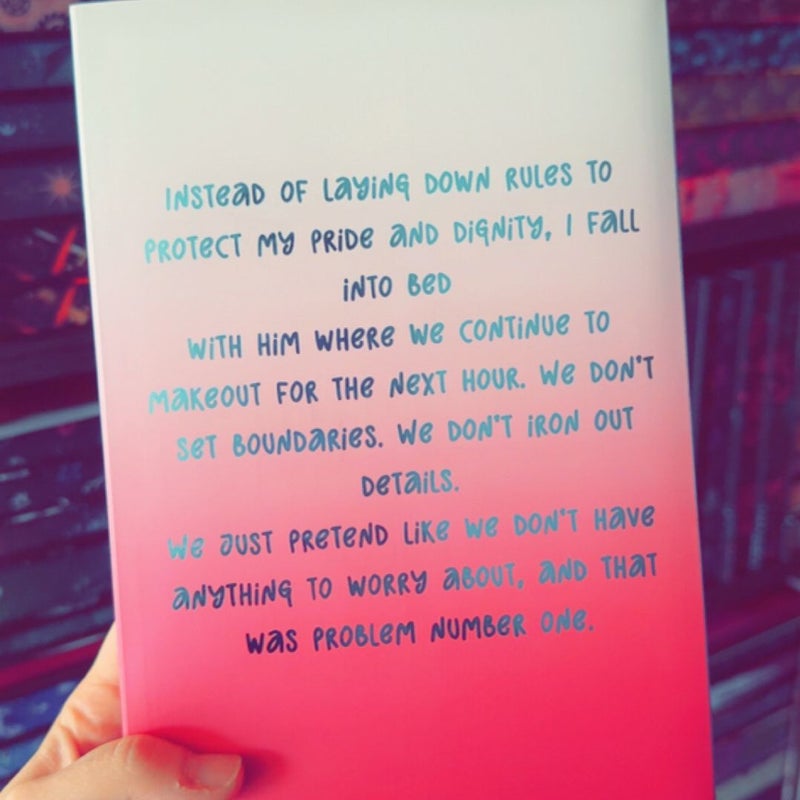 INSTEAD OF LAYING DOWN RULES TO
PROTECT MY PRIDE AND DIGNITY, I FALL
INTO BED
WITH HIM WHERE WE CONTINUE TO
MAKEOUT FOR THE NEXT HOUR. WE DON'T
SET BOUNDARIES. WE DON'T IRON OUT
DETAILS.
WE JUST PRETEND LIKE WE DON'T HAVE
ANYTHING TO WORRY ABOUT, AND THAT
WAS PROBLEM NUMBER ONE.